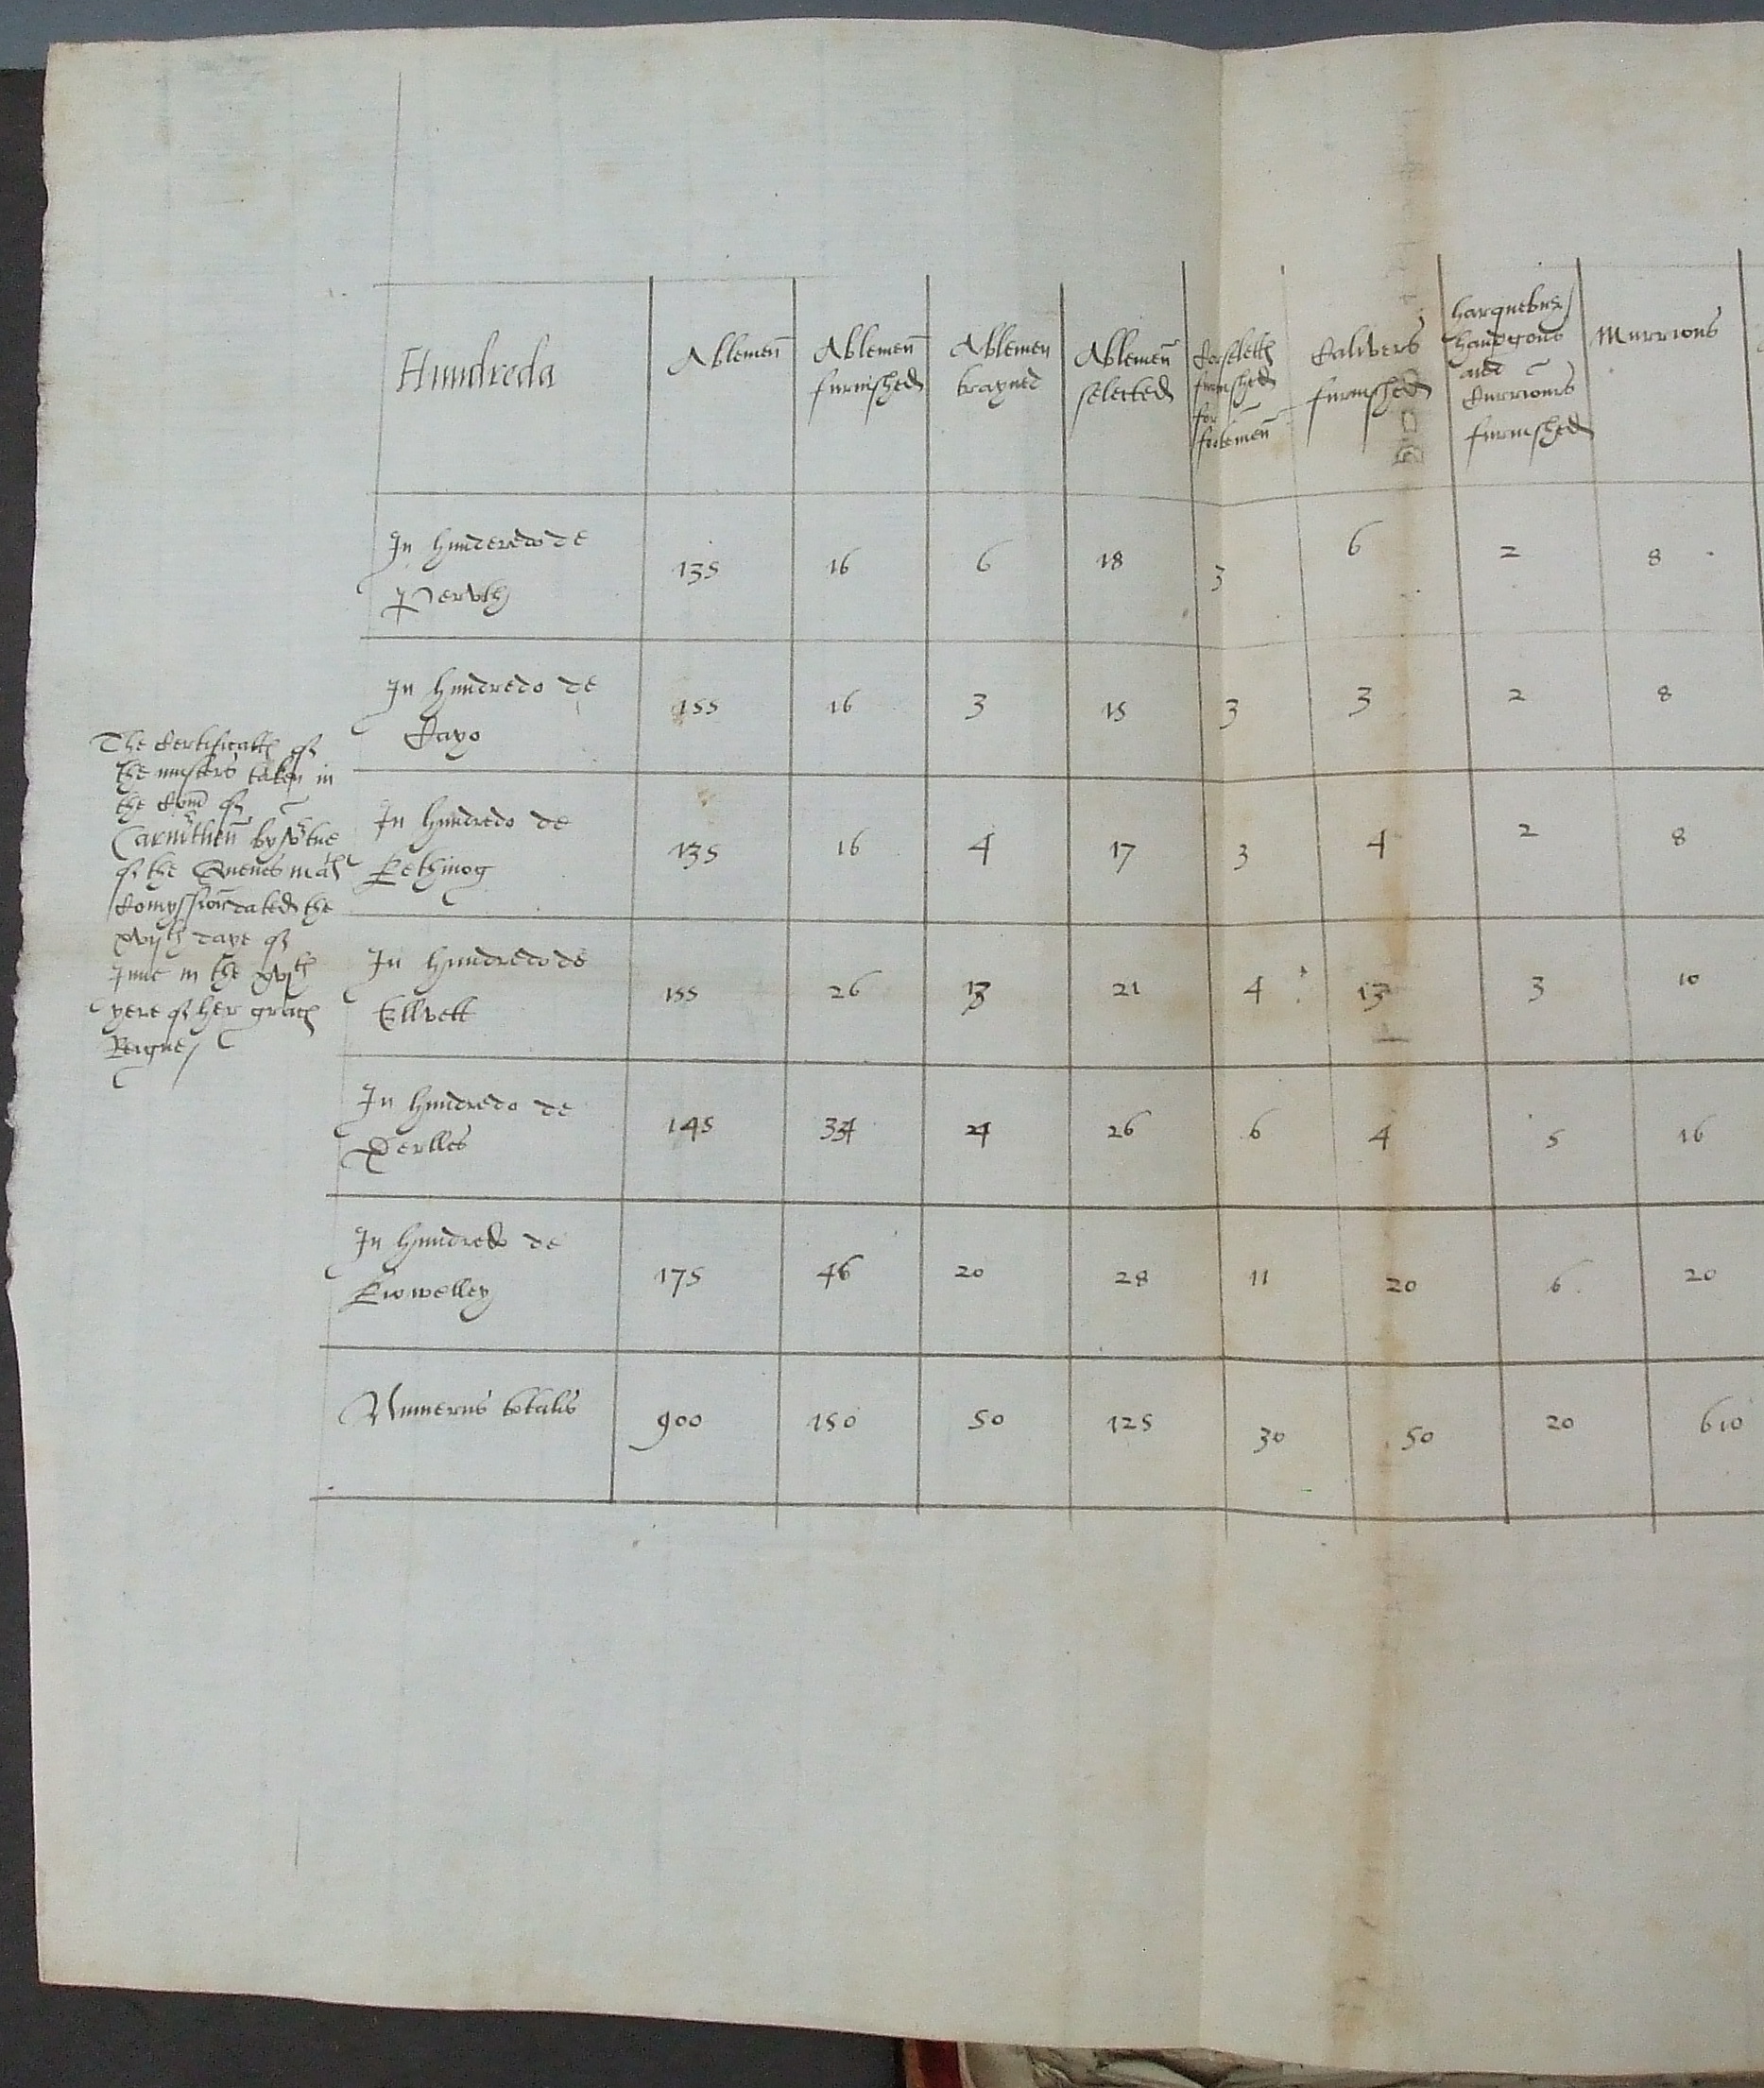 Hundreda
Ablemen̄
Ablemen̄
furnished
Ablemen
trayned
Ablemen̄
selected
Corselettꝭ
furnished
for
footemen̄
Calivers
furnished
harquebus
handgons
and
Currions
furnished
Murrions
In hunderedo de
Pervth
135 16 6 18 3 6 2 8
In hundredo de
Cayo
155 16 3 15 3 3 2 8
The Certificatꝭ of
the musters taken in
the Com̄ of
Carm̄then̄ by v̄tue
of the Quenes matꝭ
Comyssion dated the
xvijth daye of
June in the xvth
yere of her gracꝭ
Reigne/
In hundredo de
Kethinog
135 16 4 17 3 4 2 8
In hundredo de
Ellvett
155 26 13 21 4 13 3 10
In hundredo de
Derlles
145 34 4 26 6 4 5 16
In hundredo de
Kidwelley
175 46 20 28 11 20 6 20
Numerus totalis
900 150 50 125 30 50 20 610